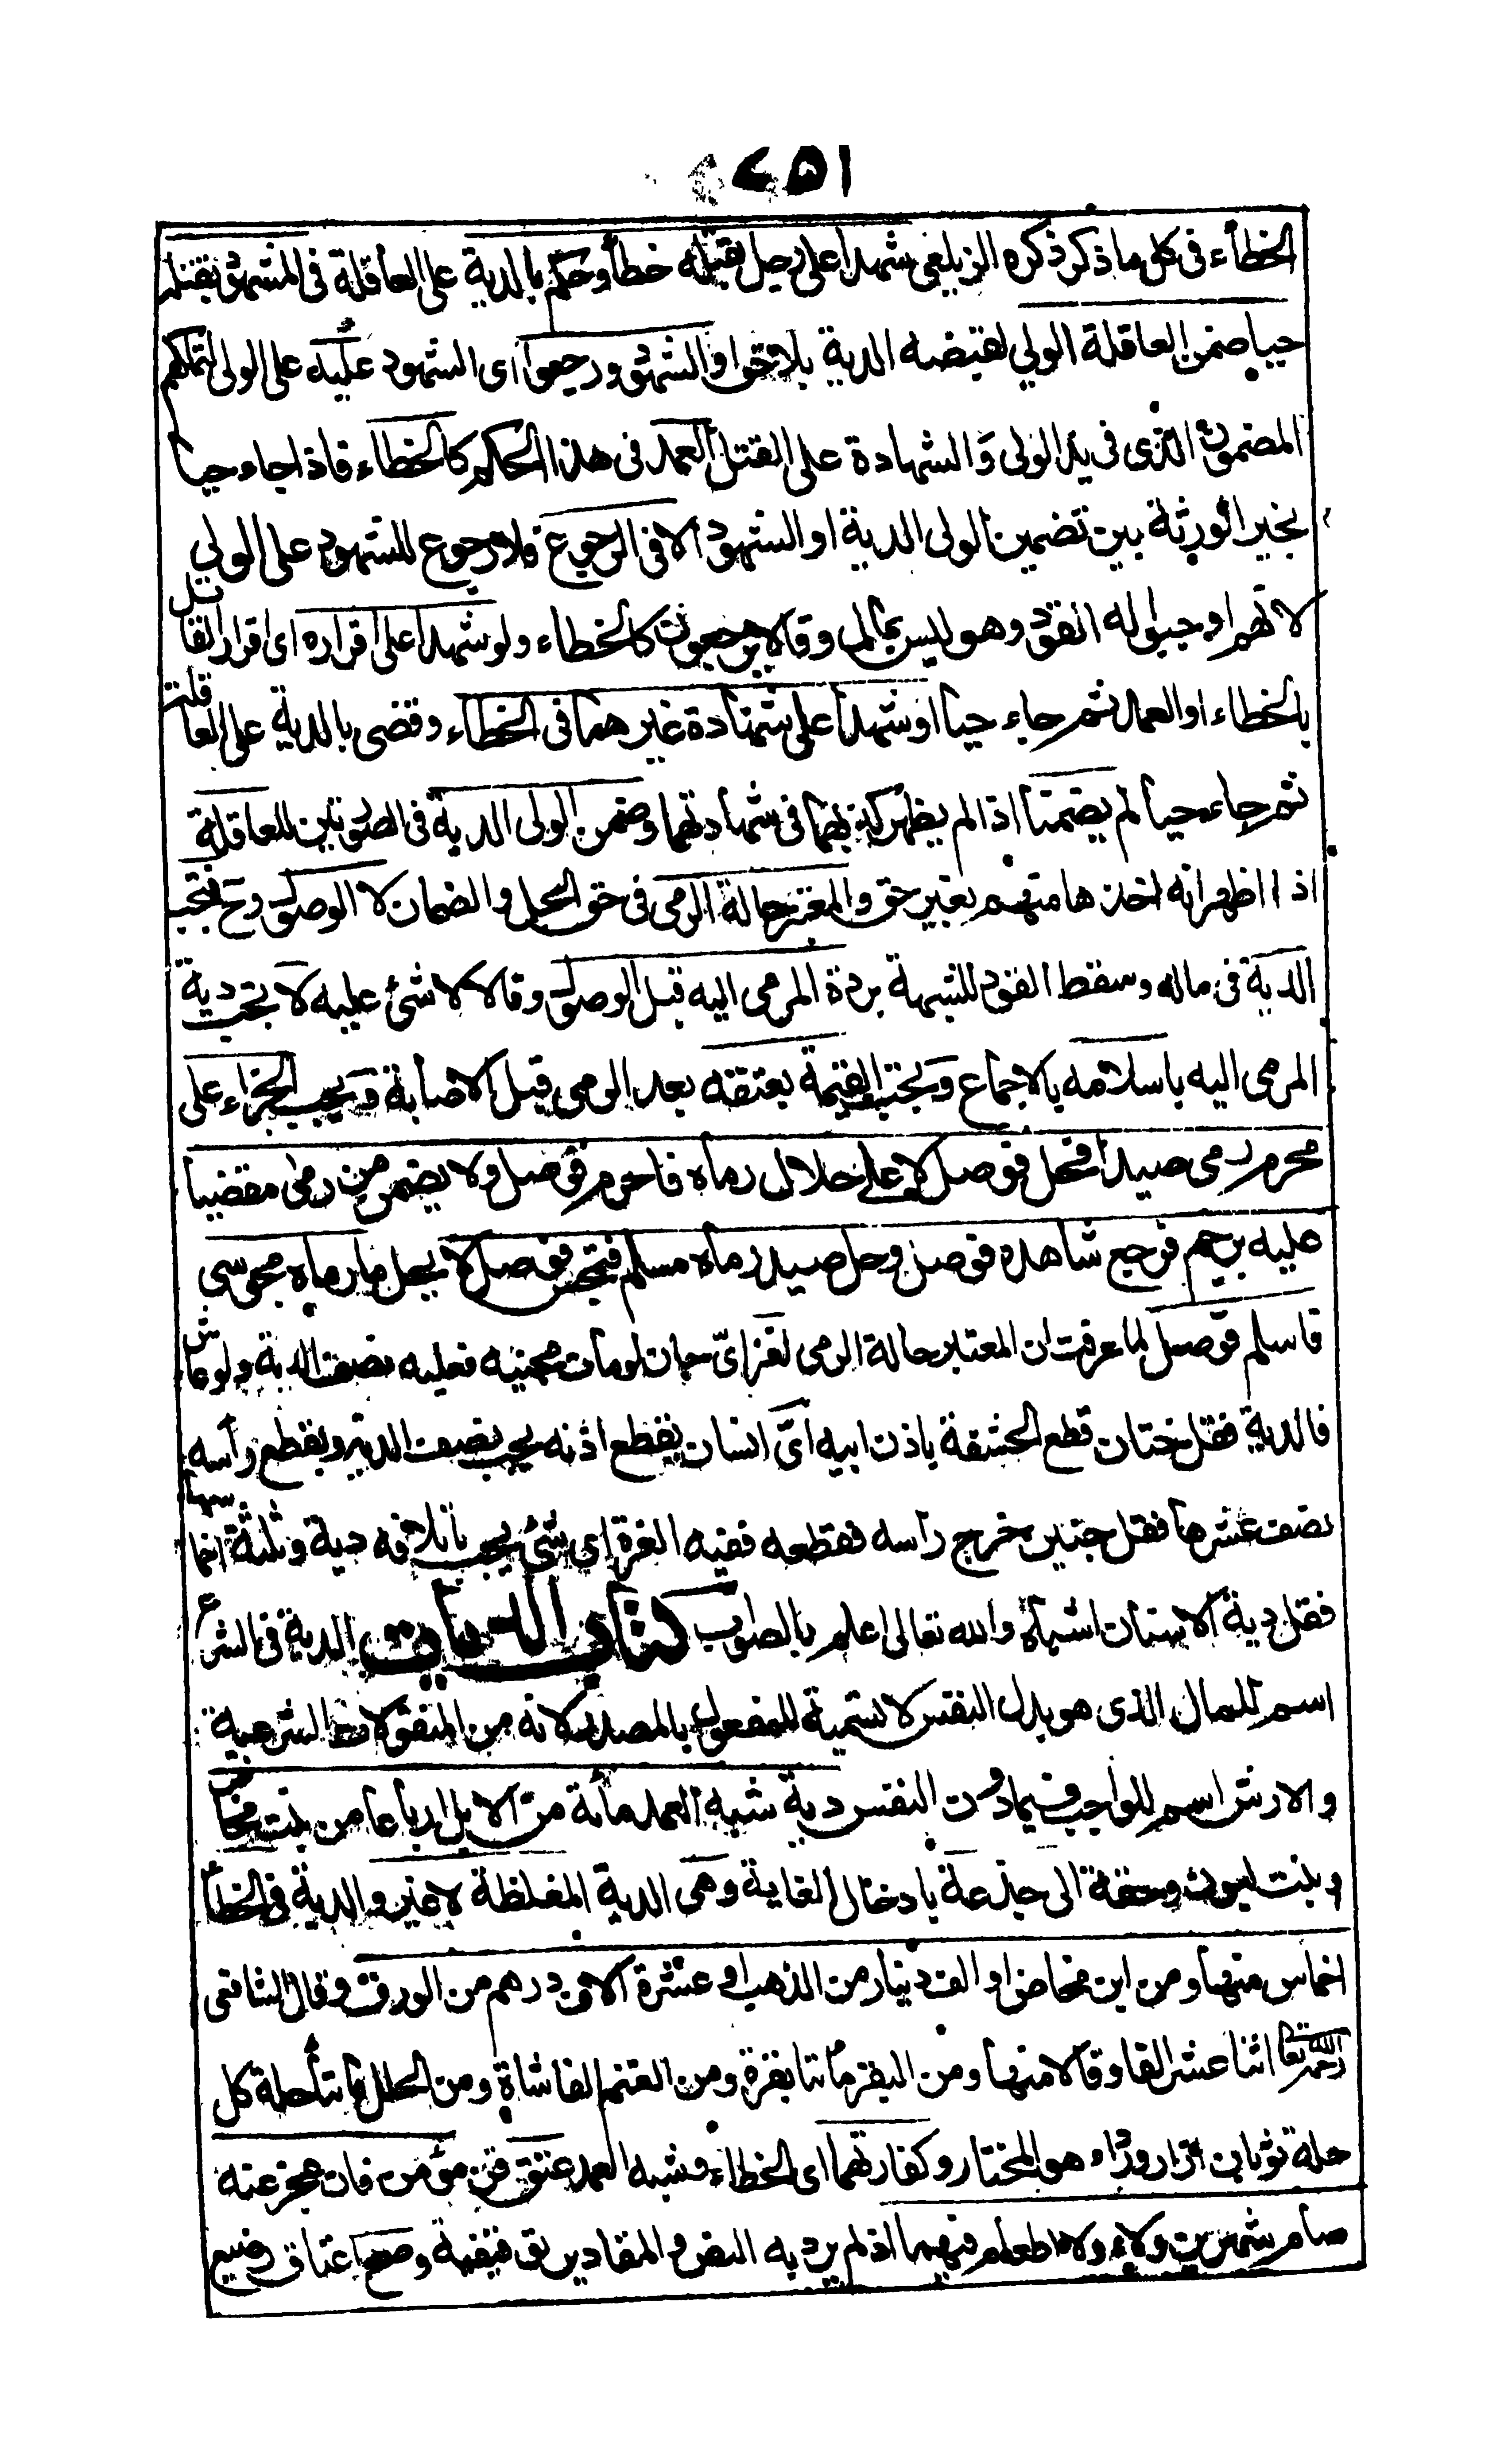 ٧٥١
الخطأء فى كل ما ذكر ذكره الزيلعى شهدا على رجل بقتله خطأ وحكم بالدية على العاقلة فى المشهود بقتله
حيا ضمن العاقلة الولي لقبضه الدية بلا حق او الشهود ورجعوا اى الشهود عليه على الولى لتملكهم
المضمون الذى فى يد الولى والشهادة على القتل العمد فى هذا الحكم كالخطاء فاذا جاء حيا
يخير الورثة بين تضمين الولى الدية او الشهود الا فى الرجوع فلا رجوع للشهود على الولي
لانهم اوجبوا له القود وهو ليس بمال وقالا يرجعون كالخطاء ولو شهدا على اقراره اى اقرار القاتل
بالخطاء او العمد ثم جاء حيا او شهدا على شهادة غيرهما فى الخطاء وقضى بالدية على العاقلة
ثم جاء حيا لم يضمنا اذ لم يظهر كذبهما فى شهادتهما وضمن الولى الدية فى الصورتين للعاقلة
اذا ظهر انه اخذها منهم بغير حق والمعتبر حالة الرمى فى حق الحل والضمان لا الوصول وح فتجب
الدية فى ماله وسقط القود للشبهة بردة المرمى اليه قبل الوصول وقالا لا شئ عليه لا تجب دية
المرمى اليه باسلامه بالاجماع وتجب القيمة بعتقه بعد الرمى قبل الاصابة ويجب الجزاء على
محرم رمى صيدا فحل فوصل لا على حلال رماه فاحرم فوصل ولا يضمن من رمى مقضيا
عليه برجم فرجع شاهده فوصل وحل صيد رماه مسلم فتمجس فوصل لا يحل ما رماه مجوسى
فاسلم فوصل لما عرفت ان المعتبر حالة الرمى لغز اىّ جان لو مات مجنيه فعليه نصف الدية ولو عاش
فالدية فقل ختان قطع الحشفة باذن ابيه اىّ انسان بقطع اذنه يجب نصف الدية وبقطع رأسه
نصف عشرها فقل جنين خرج رأسه فقطعه ففيه الغرة اى شئ يجب باتلافه دية وثلثة اخماسها
فقل دية الاسنان اشباه والله تعالى اعلم بالصواب كتاب الديات الدية فى الشرع
اسم للمال الذى هو بدل النفس لا تسمية للمفعول بالمصدر لانه من المنقولات الشرعية
والارش اسم للواجب فيما دون النفس دية شبه العمد مأئة من الابل ارباعا من بنت مخاض
وبنت لبون وحقة الى جذعة بادخال الغاية وهى الدية المغلظة لا غير والدية فى الخطأ
اخماس منها ومن ابن مخاض او الف دينار من الذهب او عشرة الاف درهم من الورق وقال الشافعى
رحمه الله تعا اثنا عشر الفا وقالا منها ومن البقر مائتا بقرة ومن الغنم الفا شاة ومن الحلل مائتا حلة كل
حلة ثوبان ازار ورداء هو المختار وكفارتهما اى الخطاء وشبه العمد عتق قن مؤمن فان عجز عنه
صام شهرين ولاء ولا اطعام فيهما اذ لم يرد به النص والمقادير توقيفية وصح اعتاق رضيع